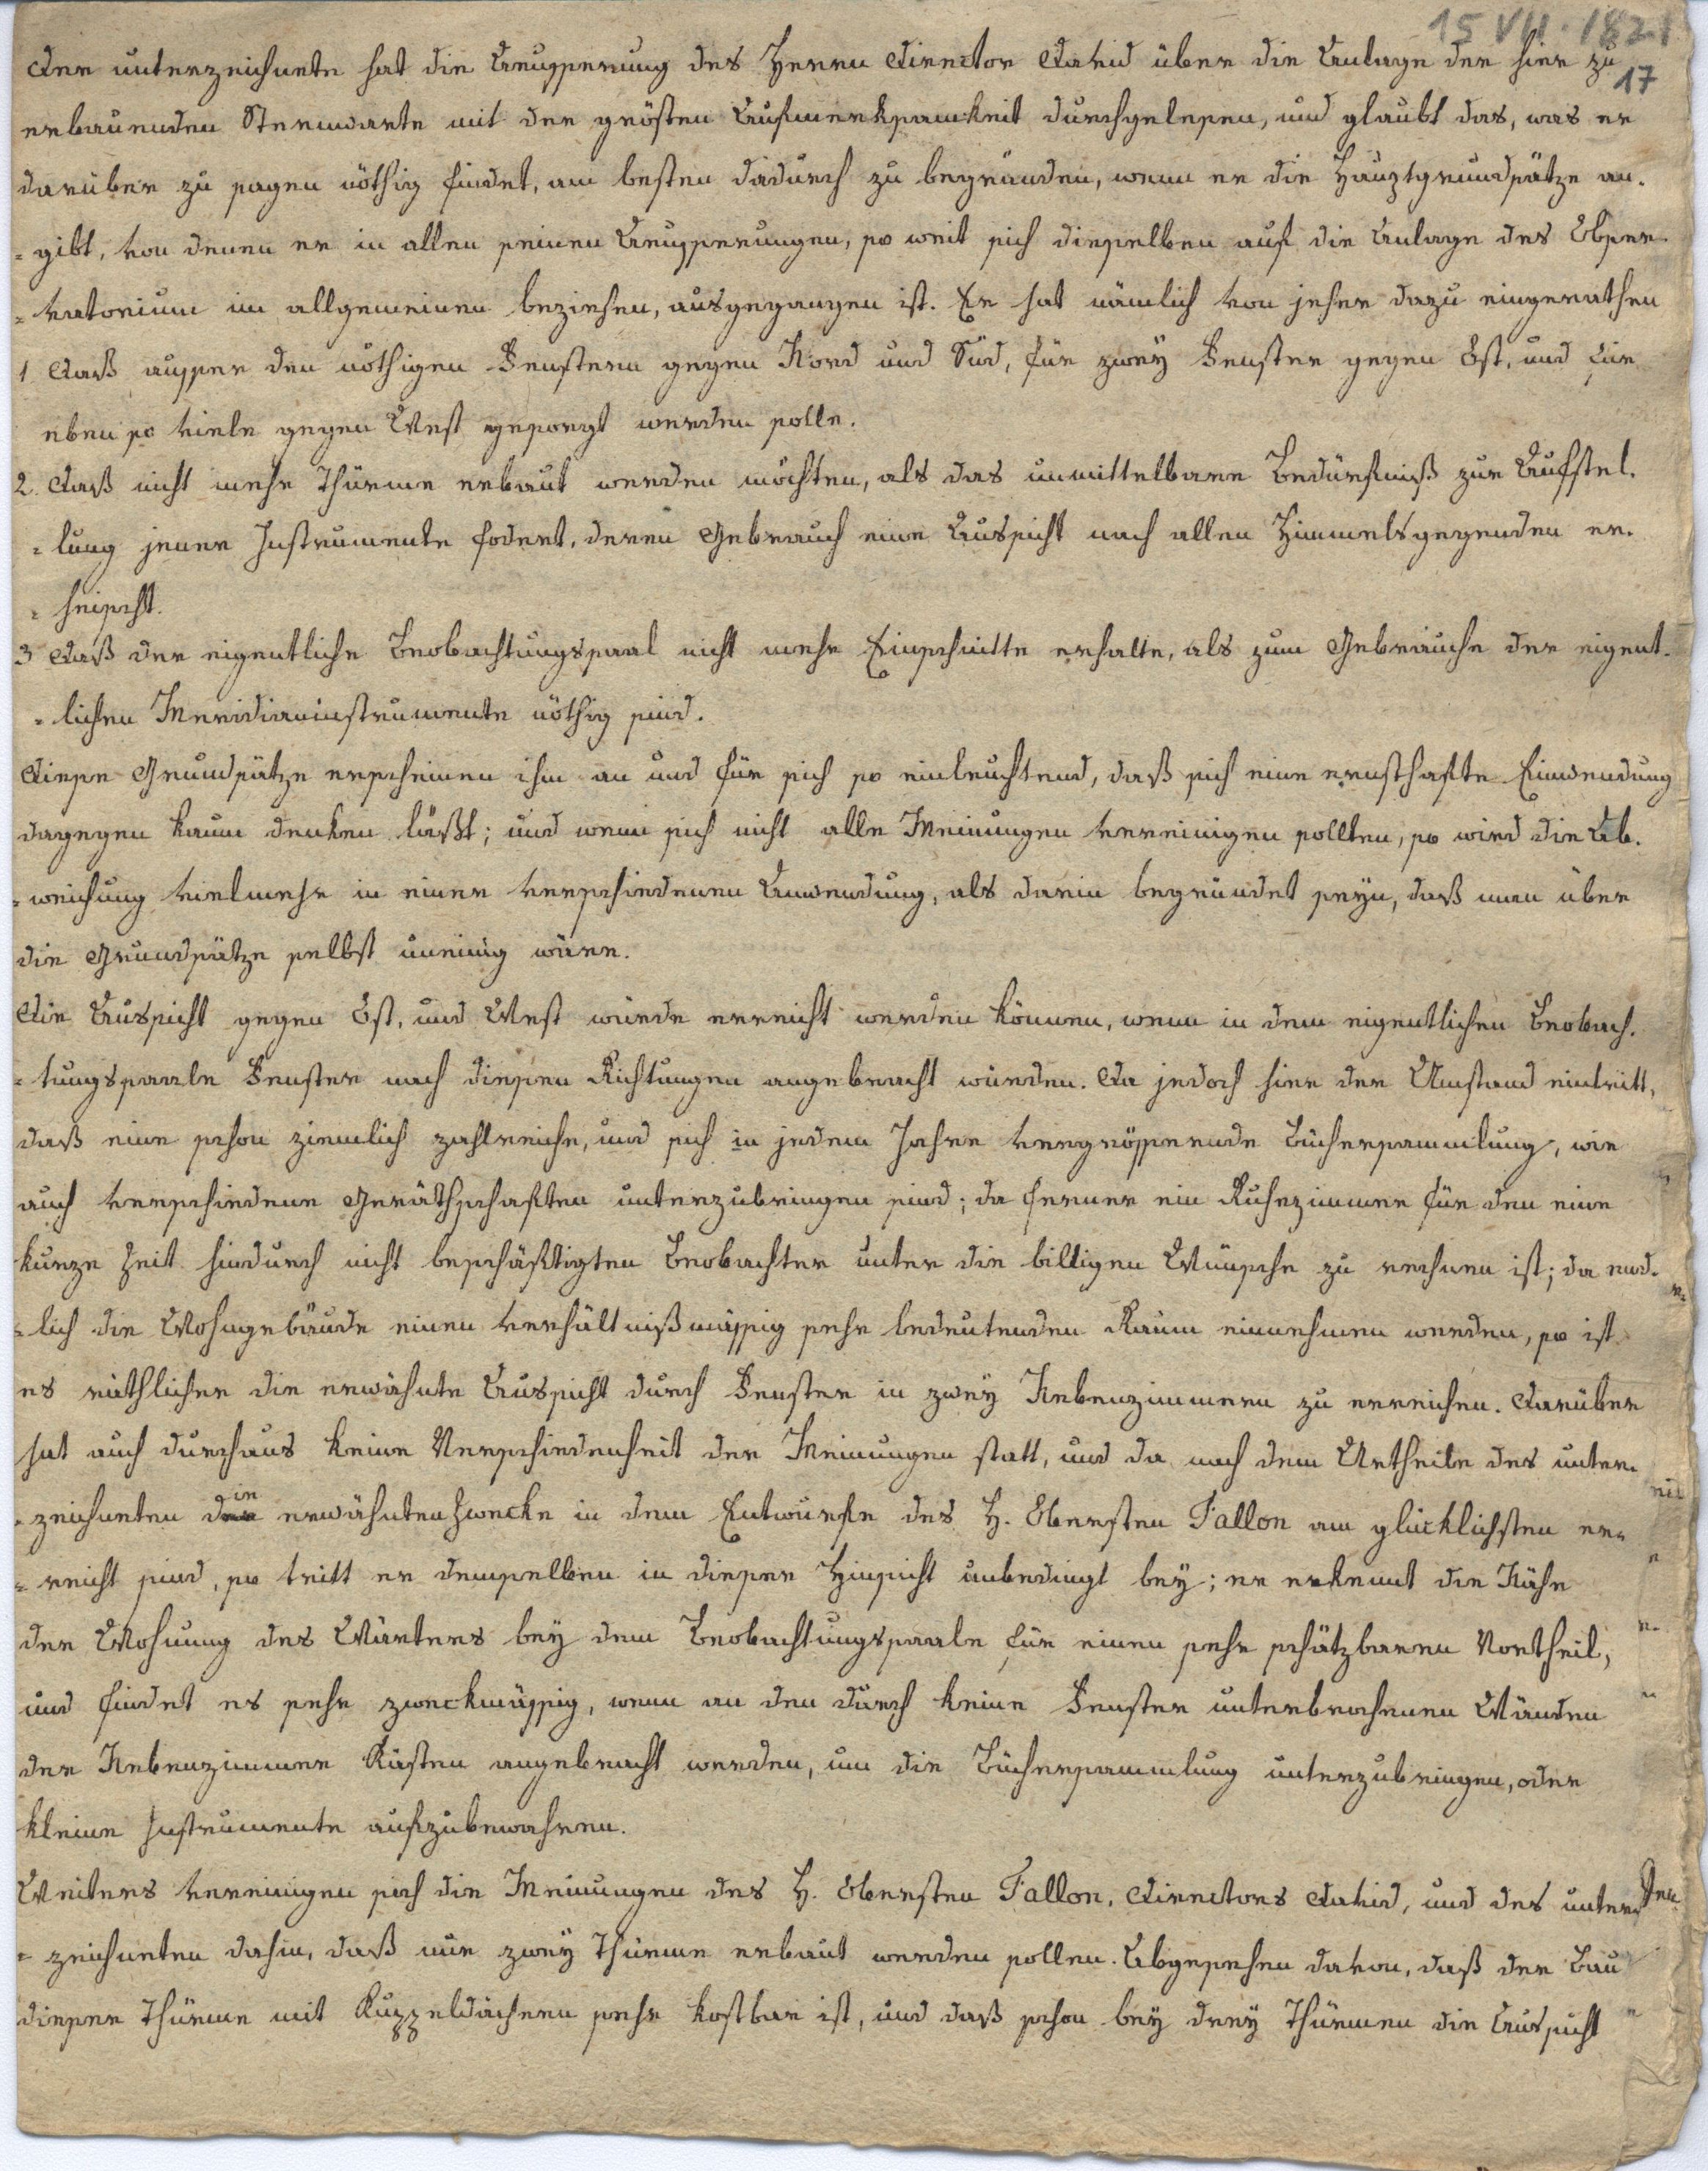 15 VII. 1821
17
Der unterzeichnete hat die Aeusserung des Herrn Director David über die Anlage der hier zu
erbauenden Sternwarte mit der grösten Aufmerksamkeit durchgelesen, und glaubt das, was er
darüber zu sagen nöthig findet, am besten dadurch zu begründen, wenn er die Hauptgrundsätze an-
=gibt, von denen er in allen seinen Aeusserungen, so weit sich dieselben auf die Anlage des Obser-
=vatorium im allgemeinen beziehen, ausgegangen ist. Er hat nämlich von jeher dazu eingerathen
1 Daß ausser den nöthigen Fenstern gegen Nord und Süd, für zwey Fenster gegen Ost, und für
eben so viele gegen West gesorgt werden solle.
2. Daß nicht mehr Thürme erbaut werden möchten, als das unmittelbare Bedürfniß zur Aufstel-
=lung jener Instrumente fodert, deren Gebrauch eine Aussicht nach allen Himmelsgegenden er-
=heischt.
3 Daß der eigentliche Beobachtungssaal nicht mehr Einschnitte erhalte, als zum Gebrauche der eigent-
=lichen Meridianinstrumente nöthig sind.
Diese Grundsätze erscheinen ihm an und für sich so einleuchtend, daß sich eine ernsthafte Einwendung
dagegen kaum denken läßt; und wenn sich nicht alle Meinungen vereinigen sollten, so wird die Ab-
=weichung vielmehr in einer verschiedenen Anwendung, als darin begründet seyn, daß man über
die Grundsätze selbst uneinig wäre.
Die Aussicht gegen Ost, und West würde erreicht werden können, wenn in dem eigentlichen Beobach-
=tungssaale Fenster nach diesen Richtungen angebracht würden. Da jedoch hier der Umstand eintritt,
daß eine schon ziemlich zahlreiche, und sich in jedem Jahre vergrössernde Büchersammlung, wie
auch verschiedene Geräthschaften unterzubringen sind; da ferner ein Ruhezimmer für den eine
kurze Zeit hindurch nicht beschäftigten Beobachter unter die billigen Wünsche zu rechnen ist; da end-
=lich die Wohngebäude einen verhältnißmässig sehr bedeutenden Raum einnehmen werden, so ist
es räthlicher die erwähnte Aussicht durch Fenster in zwey Nebenzimmern zu erreichen. Darüber
hat auch durchaus keine Verschiedenheit der Meinungen statt, und da nach dem Urtheile des unter-
=zeichneten die erwähnten Zwecke in dem Entwurfe des H. Obersten Fallon am glücklichsten er-
=reicht sind, so tritt er demselben in dieser Hinsicht unbedingt bey; er erkennt die Nähe
der Wohnung des Wärters bey dem Beobachtungssaale für einen sehr schätzbaren Vortheil,
und findet es sehr zweckmässig, wenn an den durch keine Fenster unterbrochenen Wänden
der Nebenzimmer Kästen angebracht werden, um die Büchersammlung unterzubringen, oder
kleine Instrumente aufzubewahren.
Weiters vereinigen sich die Meinungen des H. Obersten Fallon, Directors David, und des unter-
=zeichneten dahin, daß nur zwey Thürme erbaut werden sollen. Abgesehen davon, daß der Bau
dieser Thürme mit Kuppeldächern sehr kostbar ist, und daß schon bey drey Thürmen die Aussicht